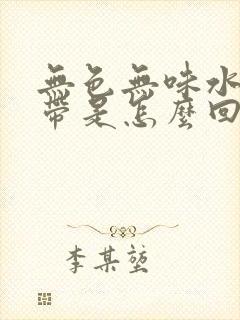 無色無味水
帶是怎麼回
李某堃